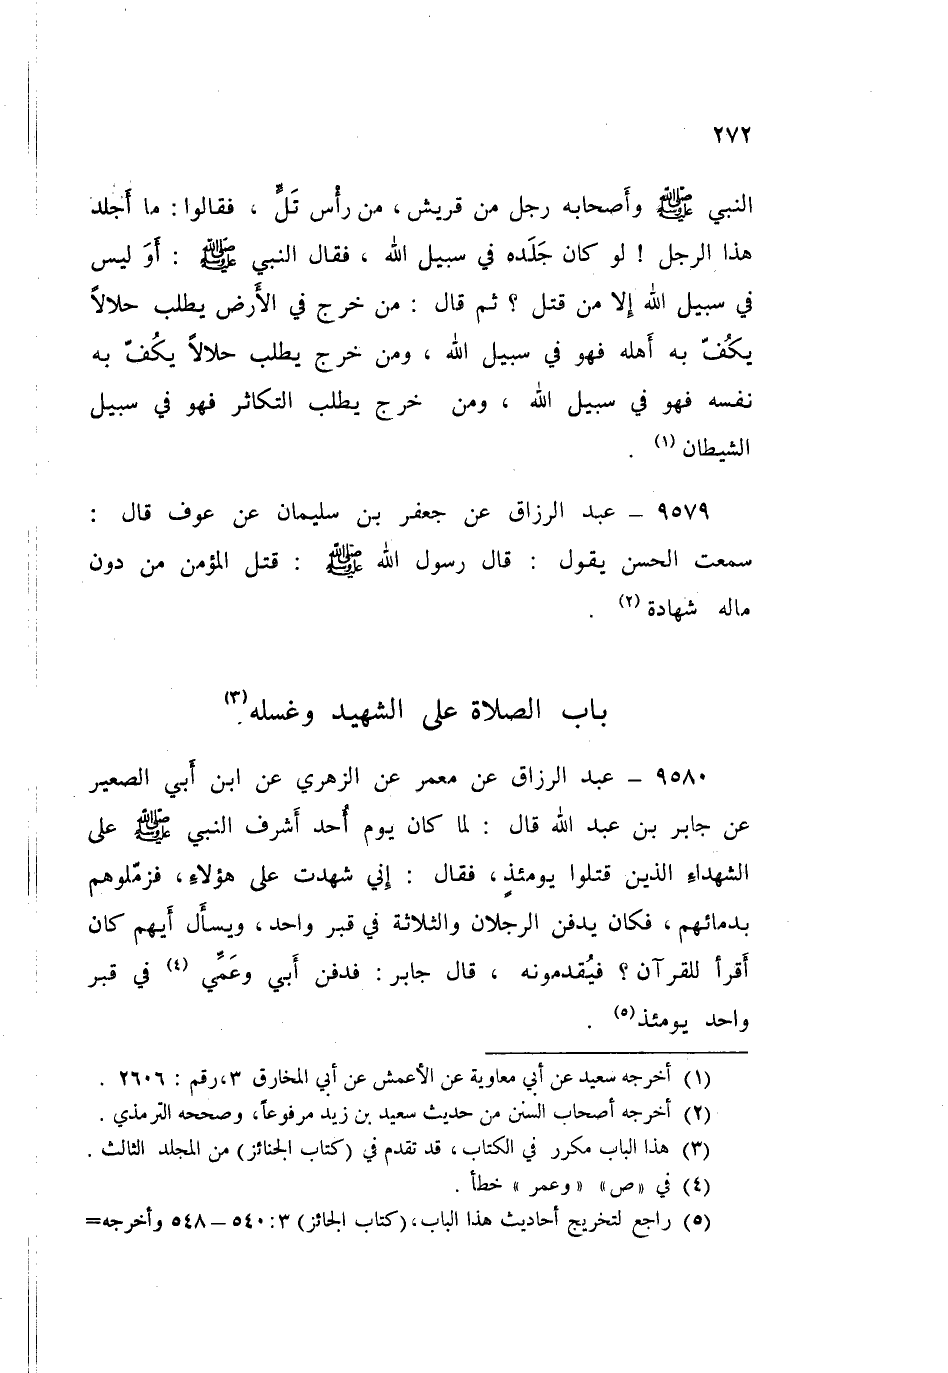 ٢٧٢
النبي ﷺ وأصحابه رجل من قريش ، من رأْس تَلٍّ ، فقالوا : ما أَجلد
هذا الرجل ! لو كان جَلَده في سبيل الله ، فقال النبي ﷺ : أَوَ ليس
في سبيل الله إلا من قتل ؟ ثم قال : من خرج في الأَرض يطلب حلالاً
يكُفّ به أَهله فهو في سبيل الله ، ومن خرج يطلب حلالاً يكُفّ به
نفسه فهو في سبيل الله ، ومن خرج يطلب التكاثر فهو في سبيل
الشيطان (١) .
٩٥٧٩ – عبد الرزاق عن جعفر بن سليمان عن عوف قال :
سمعت الحسن يقول : قال رسول الله ﷺ : قتل المؤمن من دون
ماله شهادة (٢) .
باب الصلاة على الشهيد وغسله(٣).
٩٥٨٠ – عبد الرزاق عن معمر عن الزهري عن ابن أَبي الصعير
عن جابر بن عبد الله قال : لما كان يوم أُحد أَشرف النبي ﷺ على
الشهداءِ الذين قتلوا يومئذٍ ، فقال : إني شهدت على هؤلاءِ ، فزمّلوهم
بدمائهم ، فكان يدفن الرجلان والثلاثة في قبر واحد ، ويسأَل أَيهم كان
أَقرأ للقرآن ؟ فيُقدمونه ، قال جابر : فدفن أَبي وعَمِّي (٤) في قبر
واحد يومئذ(٥) .
(١) أخرجه سعيد عن أبي معاوية عن الأعمش عن أبي المخارق ٣، رقم : ٢٦٠٦ .
(٢) أخرجه أصحاب السنن من حديث سعيد بن زيد مرفوعاً، وصححه الترمذي .
(٣) هذا الباب مكرر في الكتاب ، قد تقدم في (كتاب الجنائز) من المجلد الثالث .
(٤) في «ص» «وعمر» خطأ .
(٥) راجع لتخريج أحاديث هذا الباب، (كتاب الجائز) ٣ : ٥٤٠ – ٥٤٨ وأخرجه=